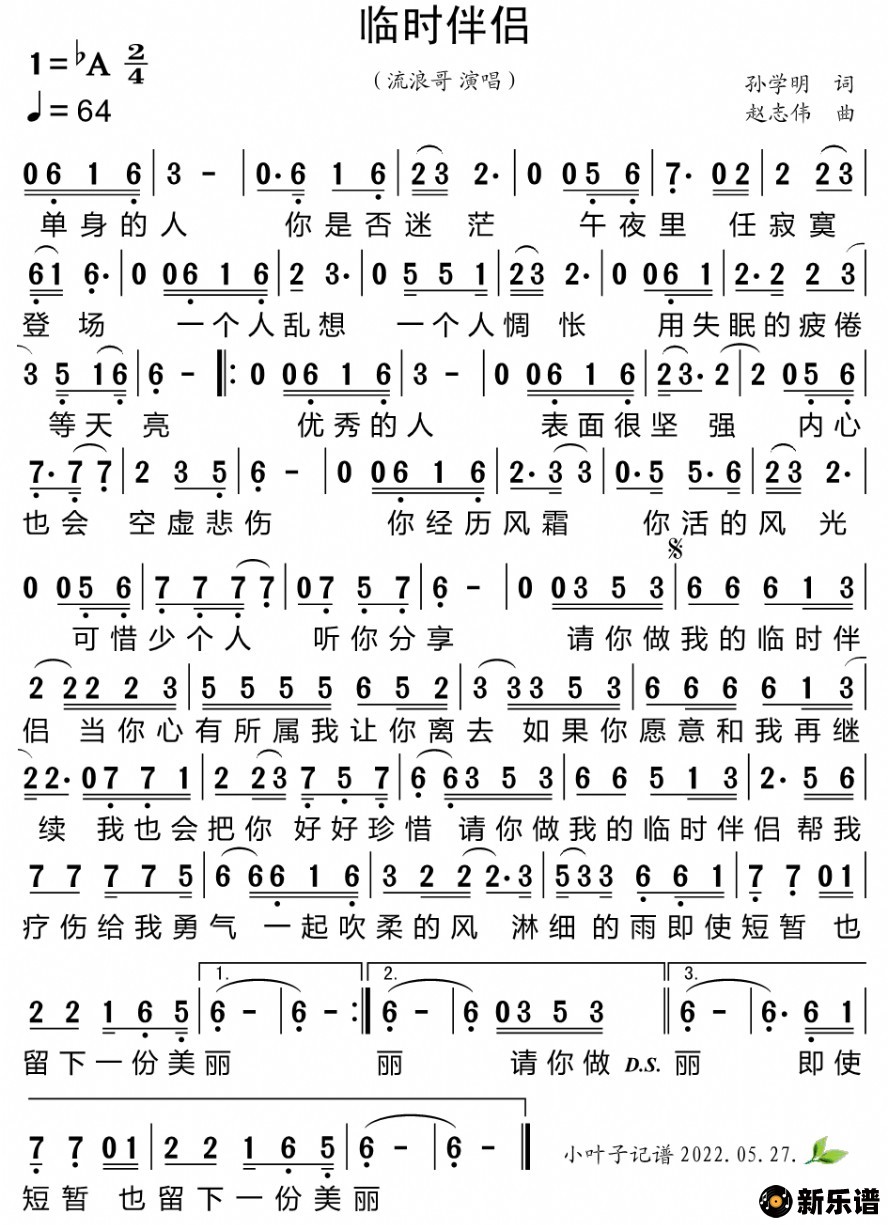 临时伴侣
1=♭A 2/4
（流浪哥 演唱）
孙学明 词
♩=64
赵志伟 曲
0 6 1 6 | 3 - | 0· 6 1 6 | 2 3 2· | 0 0 5 6 | 7· 0 2 | 2 2 3
单身的人 你是否迷 茫 午夜里 任寂寞
6 1 6· | 0 0 6 1 6 | 2 3· | 0 5 5 1 | 2 3 2· | 0 0 6 1 | 2· 2 2 3
登 场 一个人乱想 一个人惆 怅 用失眠的疲倦
3 5 1 6 | 6 - ‖: 0 0 6 1 6 | 3 - | 0 0 6 1 6 | 2 3· 2 | 2 0 5 6
等天 亮 优秀的人 表面很坚 强 内心
7· 7 7 | 2 3 5 | 6 - | 0 0 6 1 6 | 2· 3 3 | 0· 5 5· 6 | 2 3 2·
也会 空虚悲伤 你经历风霜 你活的风 光
0 0 5 6 | 7 7 7 7 | 0 7 5 7 | 6 - | 0 0 3 5 3 | 6 6 6 1 3
可惜少个人 听你分享 请你做我的临时伴
2 2 2 2 3 | 5 5 5 5 6 5 2 | 3 3 3 5 3 | 6 6 6 6 1 3
侣 当你心有所属我让你离去 如果你愿意和我再继
2 2· 0 7 7 1 | 2 2 3 7 5 7 | 6 6 3 5 3 | 6 6 5 1 3 | 2· 5 6
续 我也会把你 好好珍惜 请你做我的临时伴侣 帮我
7 7 7 7 5 | 6 6 6 1 6 | 3 2 2 2· 3 | 5 3 3 6 6 1 | 7 7 0 1
疗伤给我勇气 一起吹柔的风 淋细 的雨即使短暂 也
1. 2. 3.
2 2 1 6 5 | 6 - | 6 - :‖ 6 - | 6 - 0 3 5 3 ‖ 6 - | 6· 6 1
留下一份美丽 丽 请你做 D.S. 丽 即使
7 7 0 1 | 2 2 1 6 5 | 6 - | 6 - ‖
小叶子记谱 2022.05.27.
短暂 也留下一份美丽
新乐谱